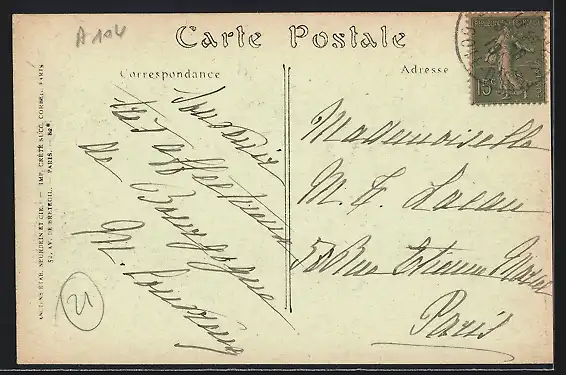 A 104
Carte Postale
Correspondance
Adresse
Souvenir
très affectueux
de Bourgogne
M.
Mademoiselle
M. T. Lacau
50 Rue Etienne Marcel
Paris
15c
21
ANCIENS ÉTAB. NEURDEIN ET CIE. — IMP. CRÉTÉ SUCC. CORBEIL. PARIS
52, AV. DE BRETEUIL. — PARIS. —